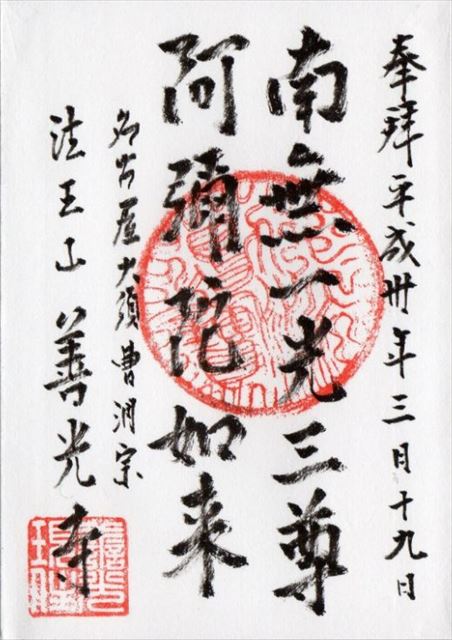 奉拜平成卅年三月十九日
南無一光三尊
阿彌陀如来
名古屋大須曹洞宗
法王山善光寺